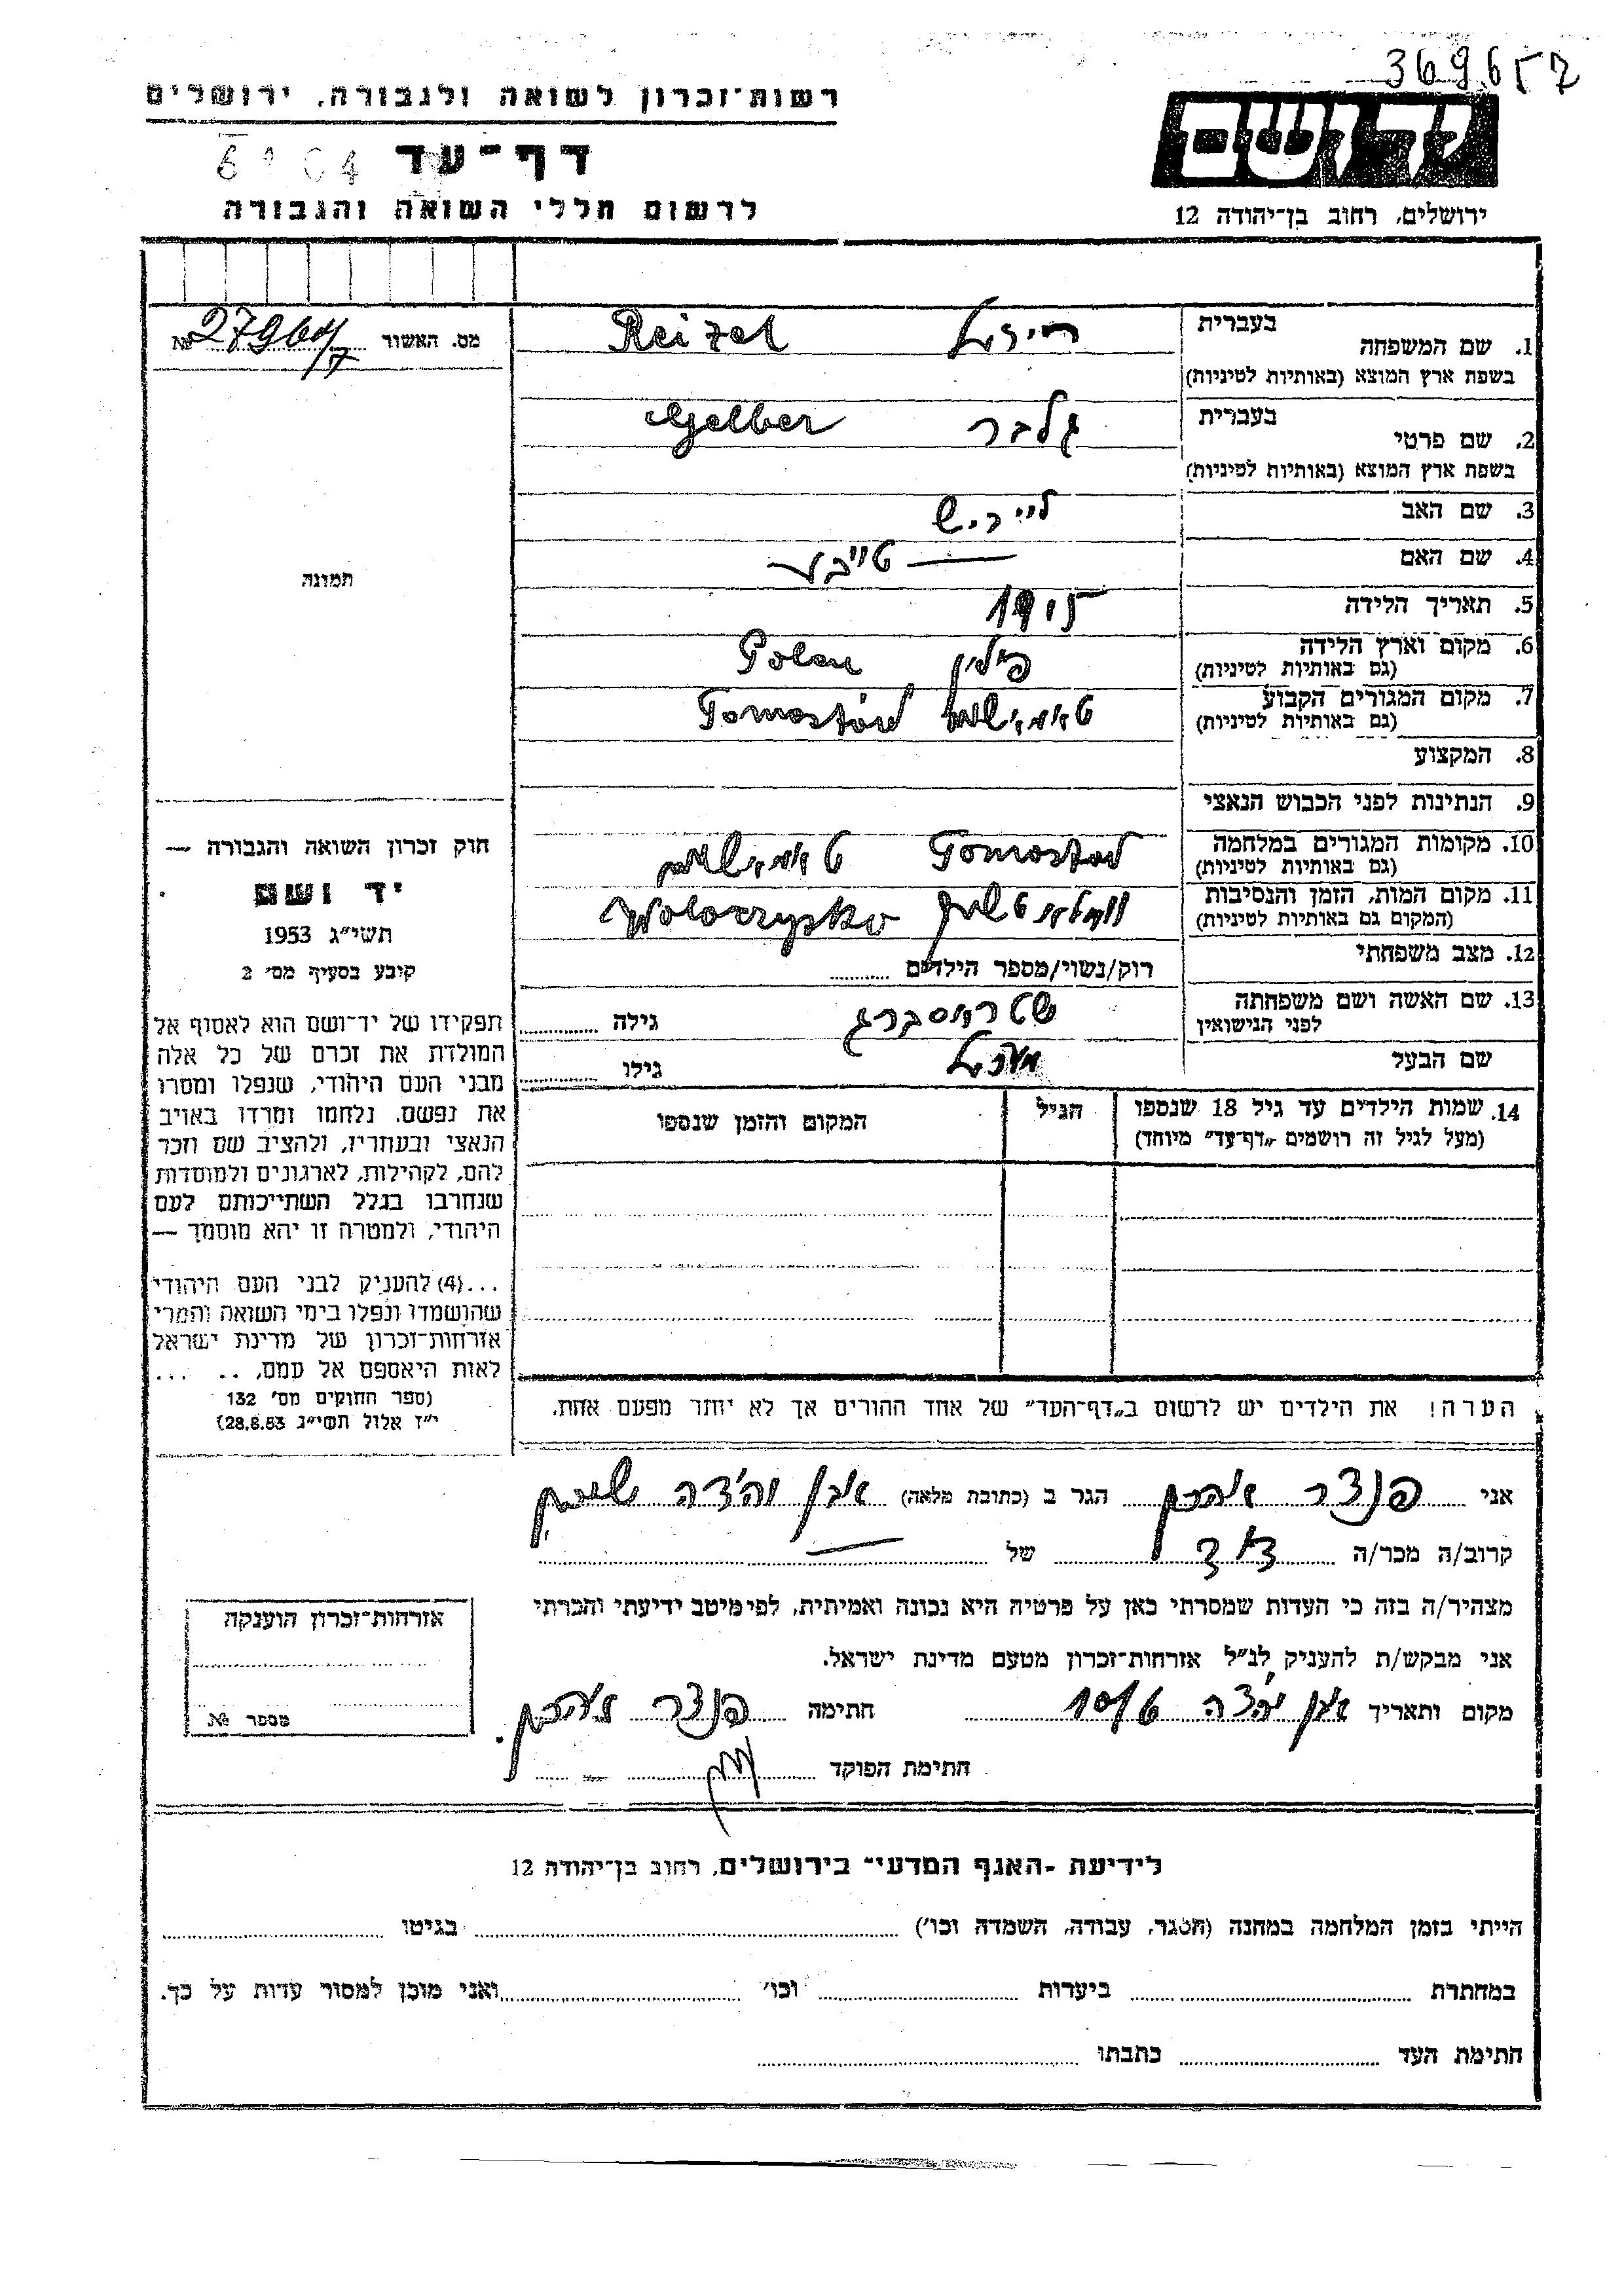 369657
רשות־זכרון לשואה ולגבורה, ירושלים
ידושם
דף־עד
6104
לרשום חללי השואה והגבורה
ירושלים, רחוב בן־יהודה 12
מס. האשור № 27964/7
בעברית
1. שם המשפחה רייזל Reizel
בשפת ארץ המוצא (באותיות לטיניות)
בעברית
2. שם פרטי גלבר Gelber
בשפת ארץ המוצא (באותיות לטיניות)
3. שם האב
4. שם האם
5. תאריך הלידה 1915
6. מקום וארץ הלידה פולין Polen
(גם באותיות לטיניות)
7. מקום המגורים הקבוע Tomostów
(גם באותיות לטיניות)
8. המקצוע
9. הנתינות לפני הכבוש הנאצי
10. מקומות המגורים במלחמה Tomostow
(גם באותיות לטיניות)
11. מקום המות, הזמן והנסיבות
(המקום גם באותיות לטיניות)
12. מצב משפחתי רוק/נשוי/מספר הילדים
13. שם האשה ושם משפחתה שטראסברג גילה
לפני הנישואין
שם הבעל גילו
14. שמות הילדים עד גיל 18 שנספו הגיל המקום והזמן שנספו
(מעל לגיל זה רושמים „דף־עד” מיוחד)
הערה! את הילדים יש לרשום ב„דף־העד” של אחד ההורים אך לא יותר מפעם אחת.
תמונה
חוק זכרון השואה והגבורה —
יד ושם
תשי״ג 1953
קובע בסעיף מס׳ 2
תפקידו של יד־ושם הוא לאסוף אל
המולדת את זכרם של כל אלה
מבני העם היהודי, שנפלו ומסרו
את נפשם, נלחמו ומרדו באויב
הנאצי ובעוזריו, ולהציב שם וזכר
להם, לקהילות, לארגונים ולמוסדות
שנחרבו בגלל השתייכותם לעם
היהודי, ולמטרה זו יהא מוסמך —
...(4) להעניק לבני העם היהודי
שהושמדו ונפלו בימי השואה והמרי
אזרחות־זכרון של מדינת ישראל
לאות היאספם אל עמם, .. ...
(ספר החוקים מס׳ 132
י״ז אלול תשי״ג 28.8.53)
אני פנצר אהרון הגר ב (כתובת מלאה) אבן יהודה שיכון
קרוב/ה מכר/ה דוד של
מצהיר/ה בזה כי העדות שמסרתי כאן על פרטיה היא נכונה ואמיתית, לפי מיטב ידיעתי והכרתי
אני מבקש/ת להעניק לנ״ל אזרחות־זכרון מטעם מדינת ישראל.
מקום ותאריך אבן יהודה 10/6 חתימה פנצר אהרון
חתימת הפוקד
אזרחות־זכרון הוענקה
מספר №
לידיעת ־האגף המדעי־ בירושלים, רחוב בן־יהודה 12
הייתי בזמן המלחמה במחנה (הסגר, עבודה, השמדה וכו׳) בגיטו
במחתרת ביערות וכו׳ ואני מוכן למסור עדות על כך.
חתימת העד כתבתו